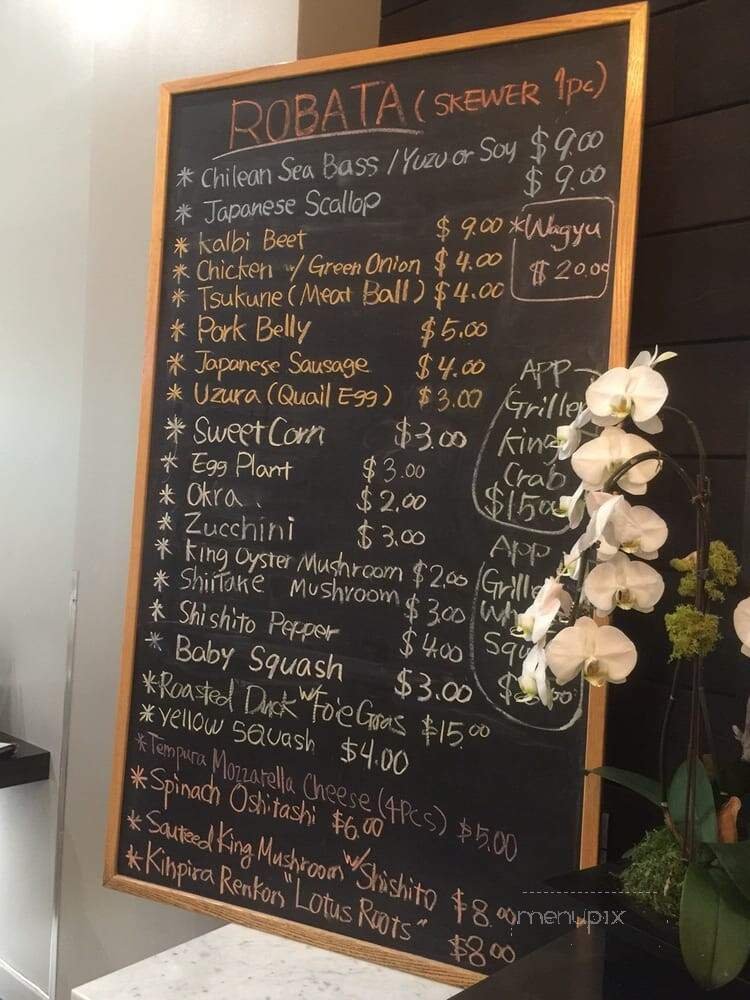 ROBATA (SKEWER 1pc)
* Chilean Sea Bass / Yuzu or Soy $9.00
* Japanese Scallop $9.00
* Kalbi Beet $9.00
* Wagyu
$20.00
* Chicken w/ Green Onion $4.00
* Tsukune (Meat Ball) $4.00
* Pork Belly $5.00
* Japanese Sausage $4.00
* Uzura (Quail Egg) $3.00
APP
King
Crab
* Sweet Corn $3.00
* Egg Plant $3.00
* Okra $2.00
* Zucchini $3.00
* King Oyster Mushroom $2.00
* Shiitake Mushroom $3.00
* Shishito Pepper $4.00
* Baby Squash $3.00
App
* Roasted Duck w/ Foie Gras $15.00
* Yellow Squash $4.00
* Tempura Mozzarella Cheese (4pcs) $5.00
* Spinach Oshitashi $6.00
* Sauteed King Mushroom w/ Shishito $8.00
* Kinpira Renkon "Lotus Roots" $8.00
menupix